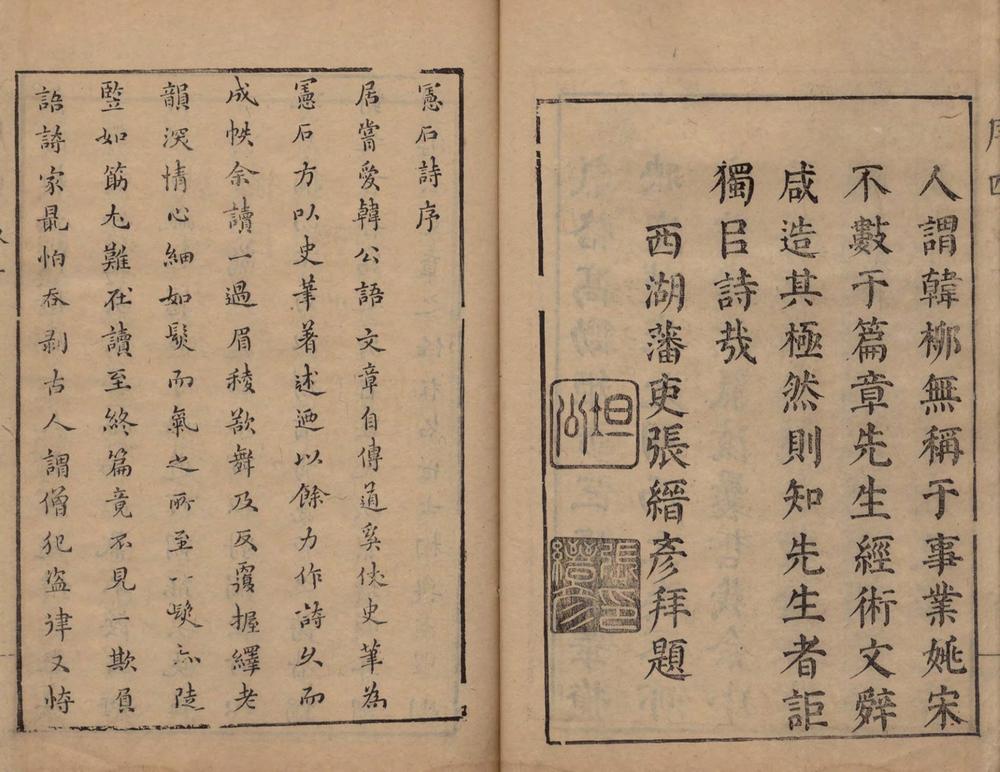 序四
人謂韓柳無稱于事業姚宋
不數于篇章先生經術文辭
咸造其極然則知先生者詎
獨㠯詩哉
西湖藩吏張縉彥拜題
坦公
張縉彥印
憲石詩序
居嘗愛韓公語文章自傳道奚仗史筆為
憲石方以史筆著述迺以餘力作詩久而
成帙余讀一過眉稜歆舞及反覆握繹老
韻深情心細如髮而氣之所至而髮亦陡
豎如筋尤難在讀至終篇竟不見一欺負
語詩家最怕吞剥古人謂僧犯盜律又恃